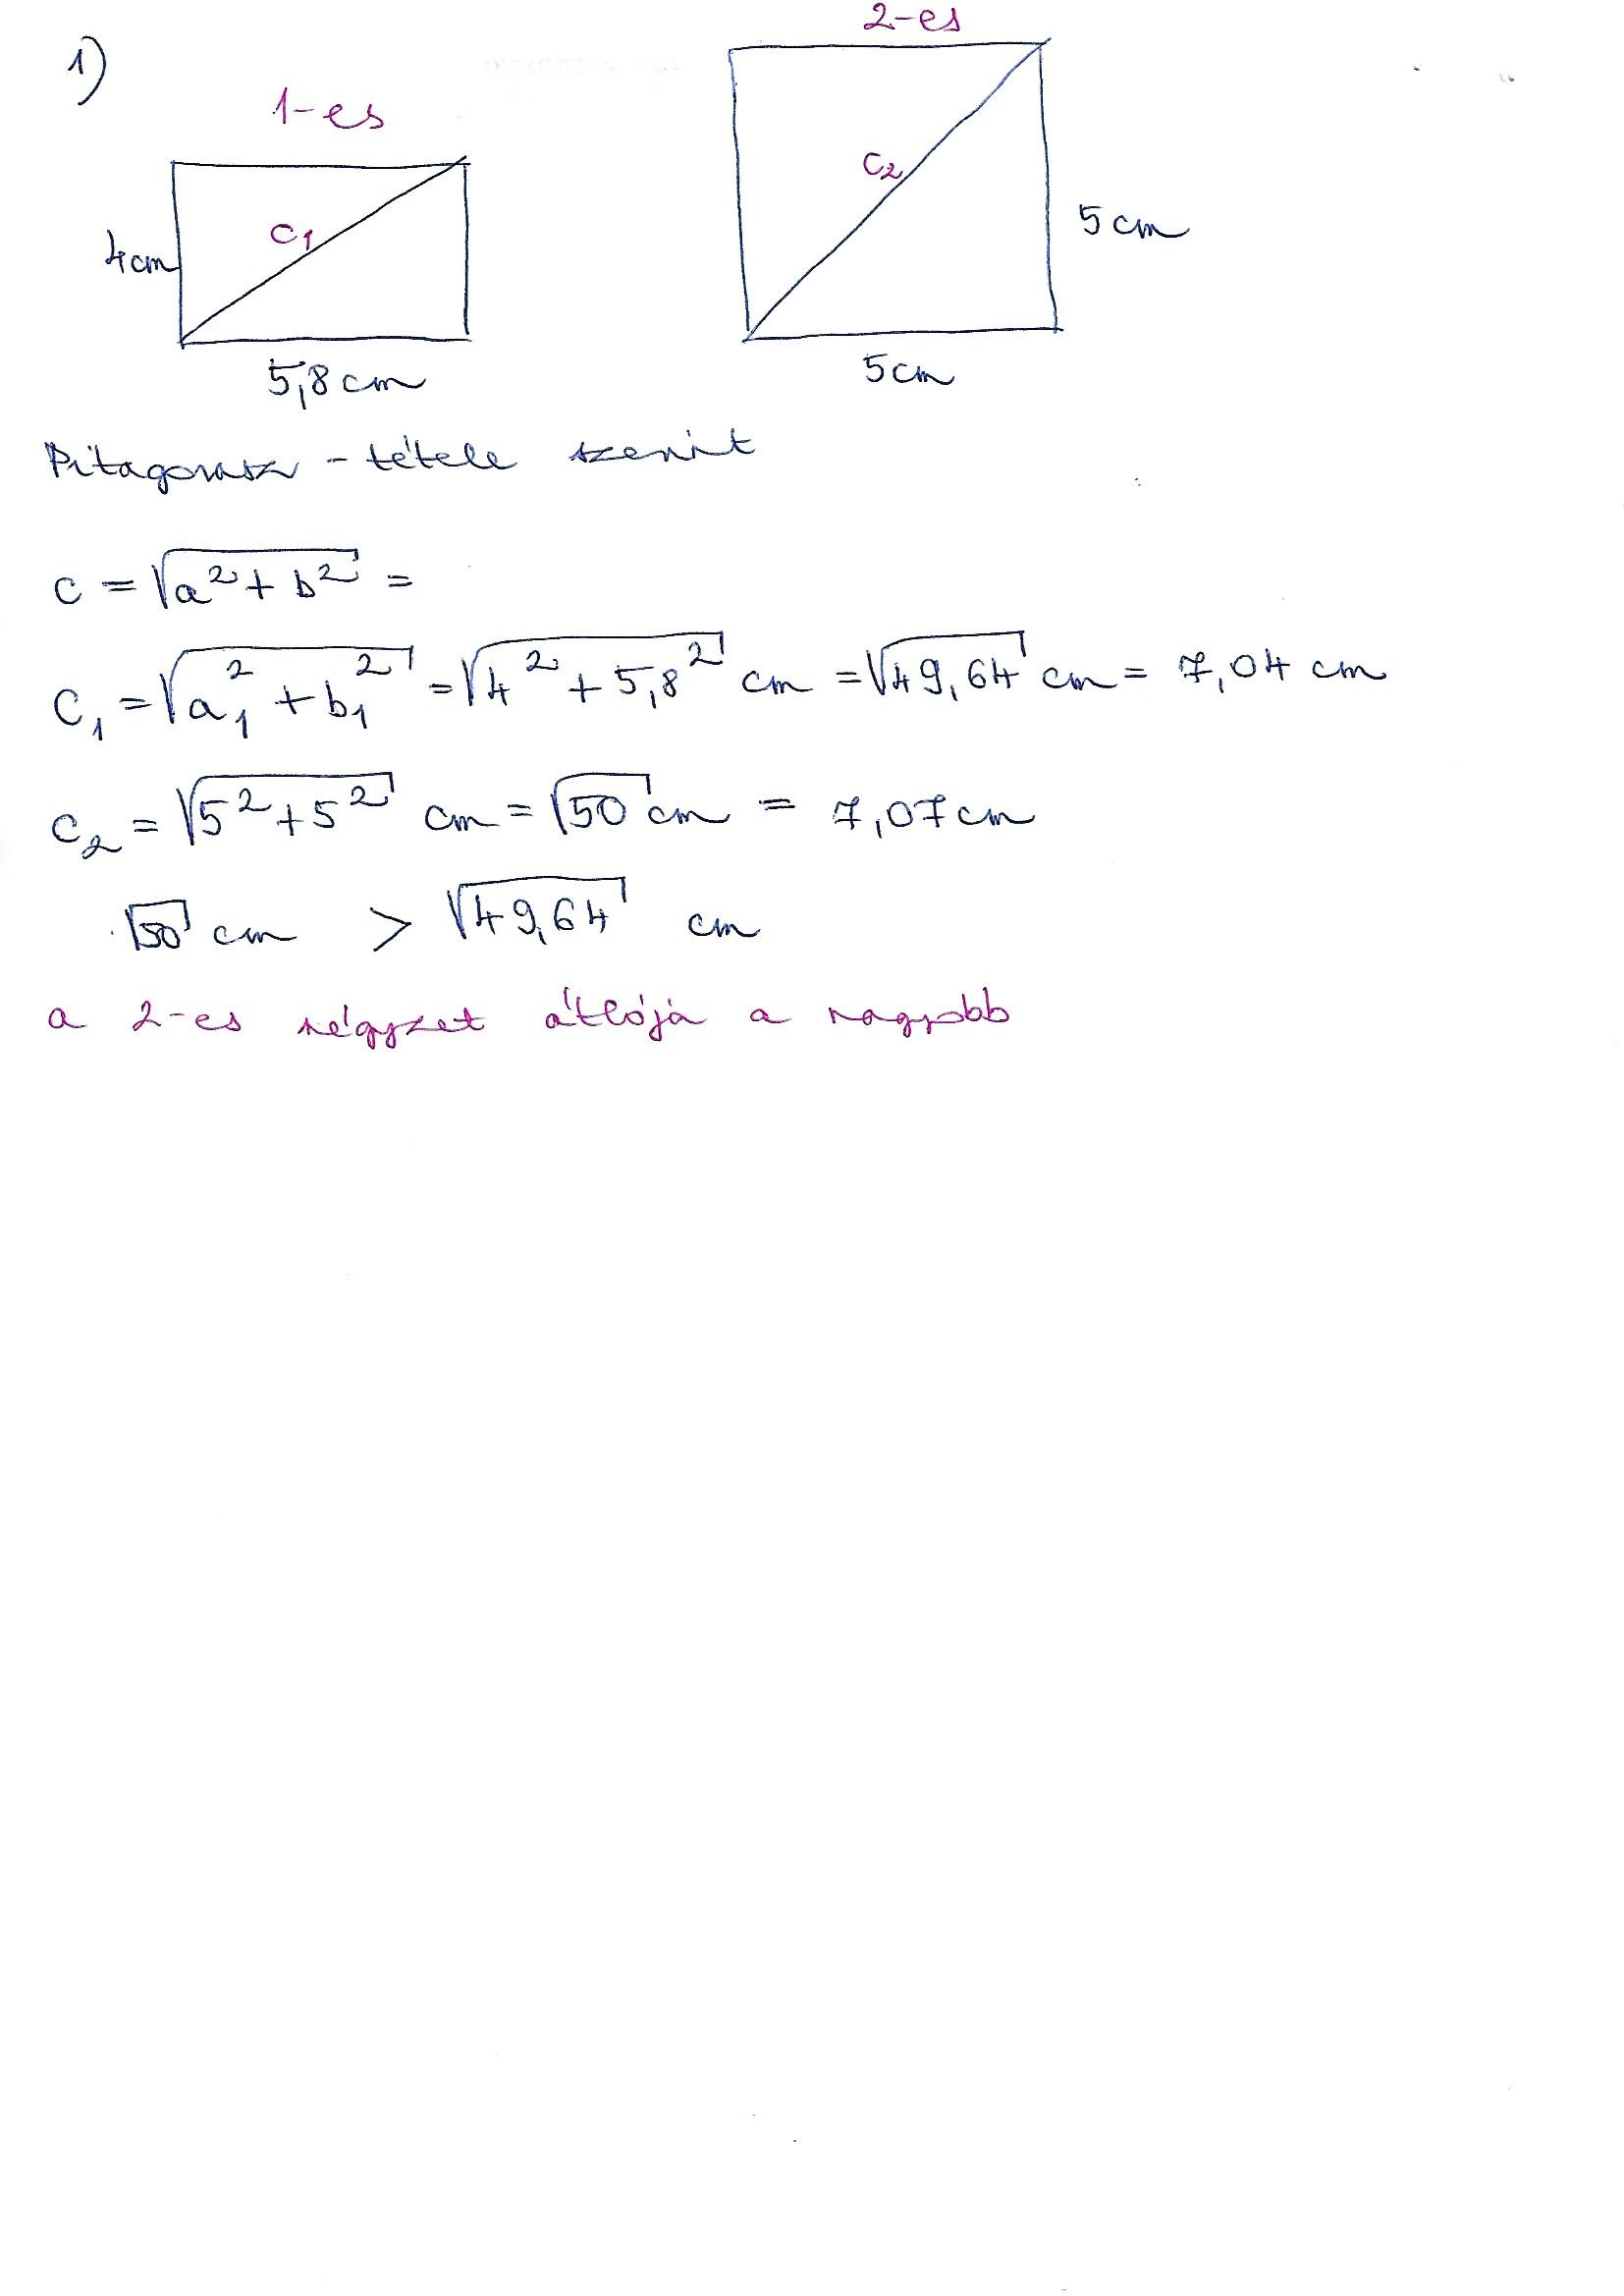 1)
1-es
2-es
c₁
c₂
4cm
5cm
5,8cm
5cm
Pitagorasz-tétele szerint
c = √(a² + b²) =
c₁ = √(a₁² + b₁²) = √(4² + 5,8²) cm = √49,64 cm = 7,04 cm
c₂ = √(5² + 5²) cm = √50 cm = 7,07cm
√50 cm > √49,64 cm
a 2-es négyzet átlója a nagyobb